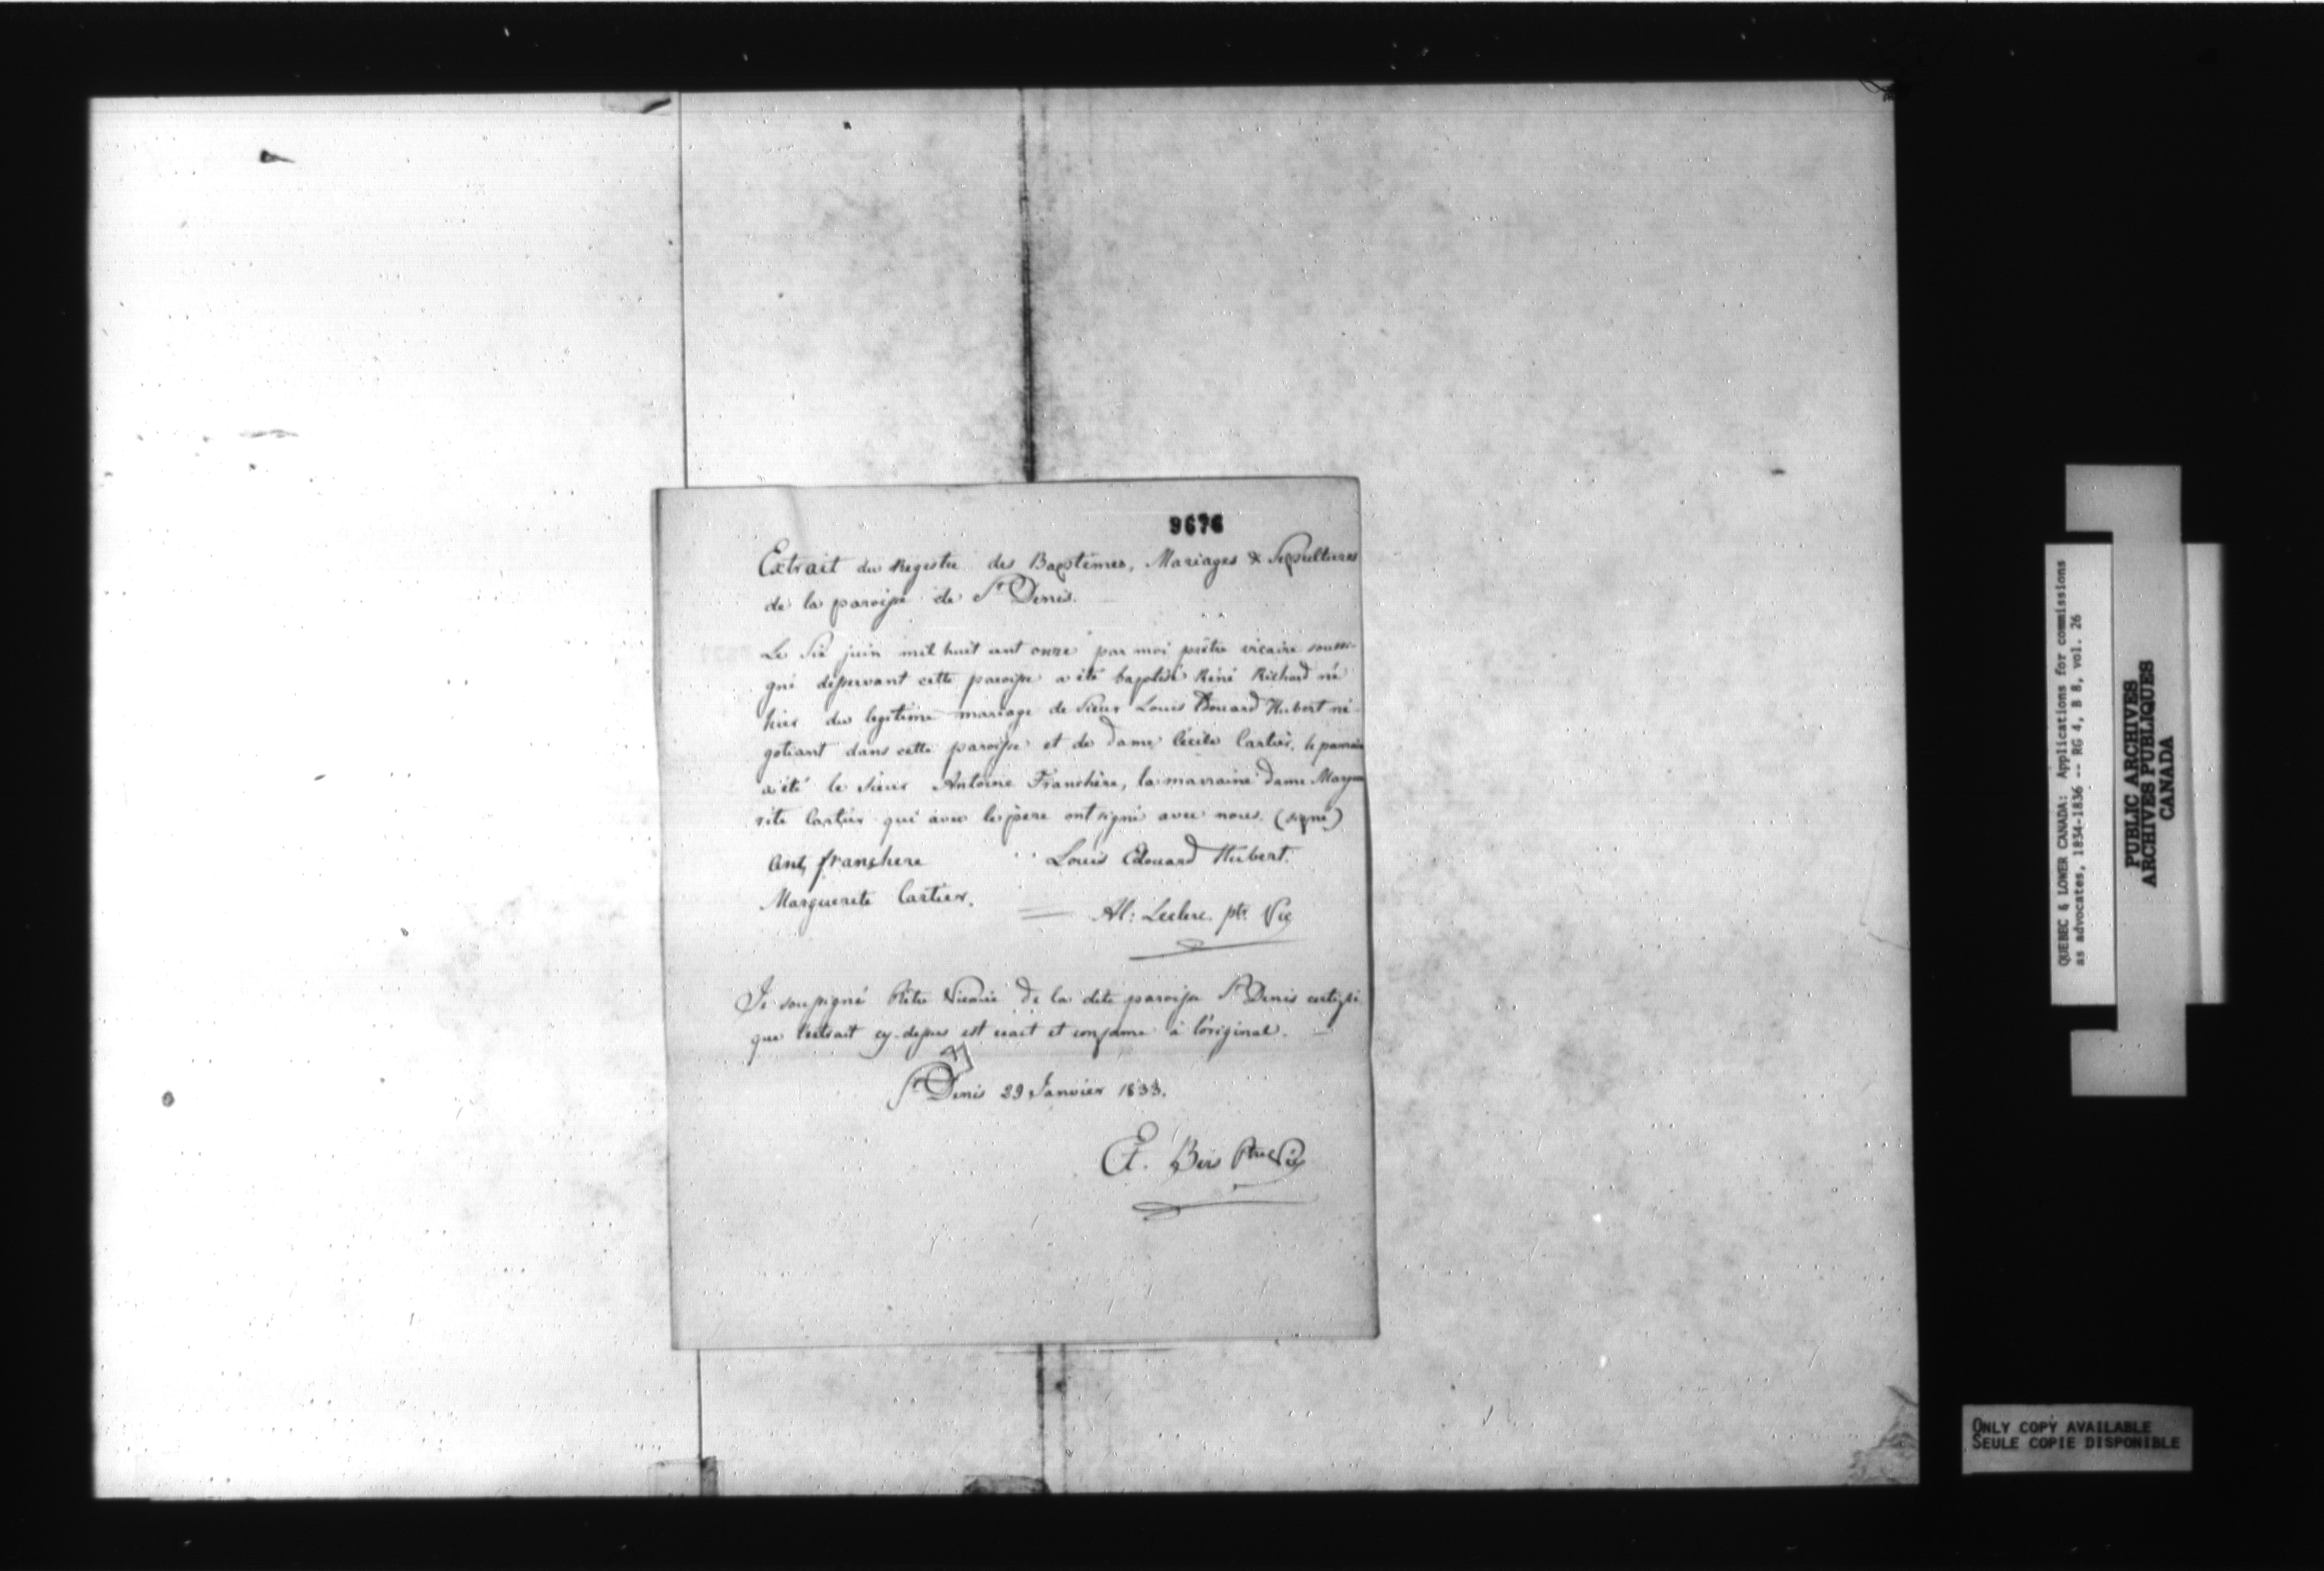 9676
Extrait du Registre des Baptêmes, Mariages & Sepultures
de la paroisse de St Denis.
Le Six juin mil huit cent onze par moi prêtre vicaire soussi-
gné desservant cette paroisse a été baptisé Réné Richard né
hier du legitime mariage de Sieur Louis Edouard Hubert né-
gotiant dans cette paroisse et de dame Cécile Cartier. le parrain
a été le Sieur Antoine Franchère, la marraine dame Margue
rite Cartier qui avec le père ont signé avec nous. (signé)
Ant, franchere Louis Edouard Hubert.
Marguerite Cartier. Al: Leclerc. ptr. Vic
Je soussigné Prêtre Vicaire de la dite paroisse St Denis certifie
que l'extrait cy-dessus est exact et conforme à l'original.
St Denis 29 Janvier 1833.
Et. Birs Ptre Vic
QUEBEC & LOWER CANADA: Applications for commissions
as advocates, 1834-1836 -- RG 4, B 8, vol. 26
PUBLIC ARCHIVES
ARCHIVES PUBLIQUES
CANADA
ONLY COPY AVAILABLE
SEULE COPIE DISPONIBLE